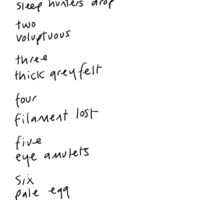 sleep hunters drop
two
voluptuous
three
thick grey felt
four
filament lost
five
eye amulets
six
pale egg